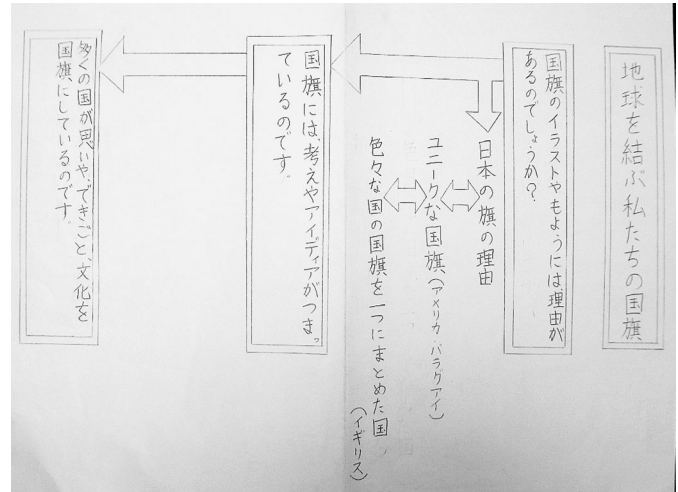 地球を結ぶ私たちの国旗
国旗のイラストやもようには、理由が
あるのでしょうか?
日本の旗の理由
ユニークな国旗(アメリカ・パラグアイ)
色々な国の国旗を一つにまとめた国
(イギリス)
国旗には、考えやアイディアがつまっ
ているのです。
多くの国が思いや、できごと、文化を
国旗にしているのです。